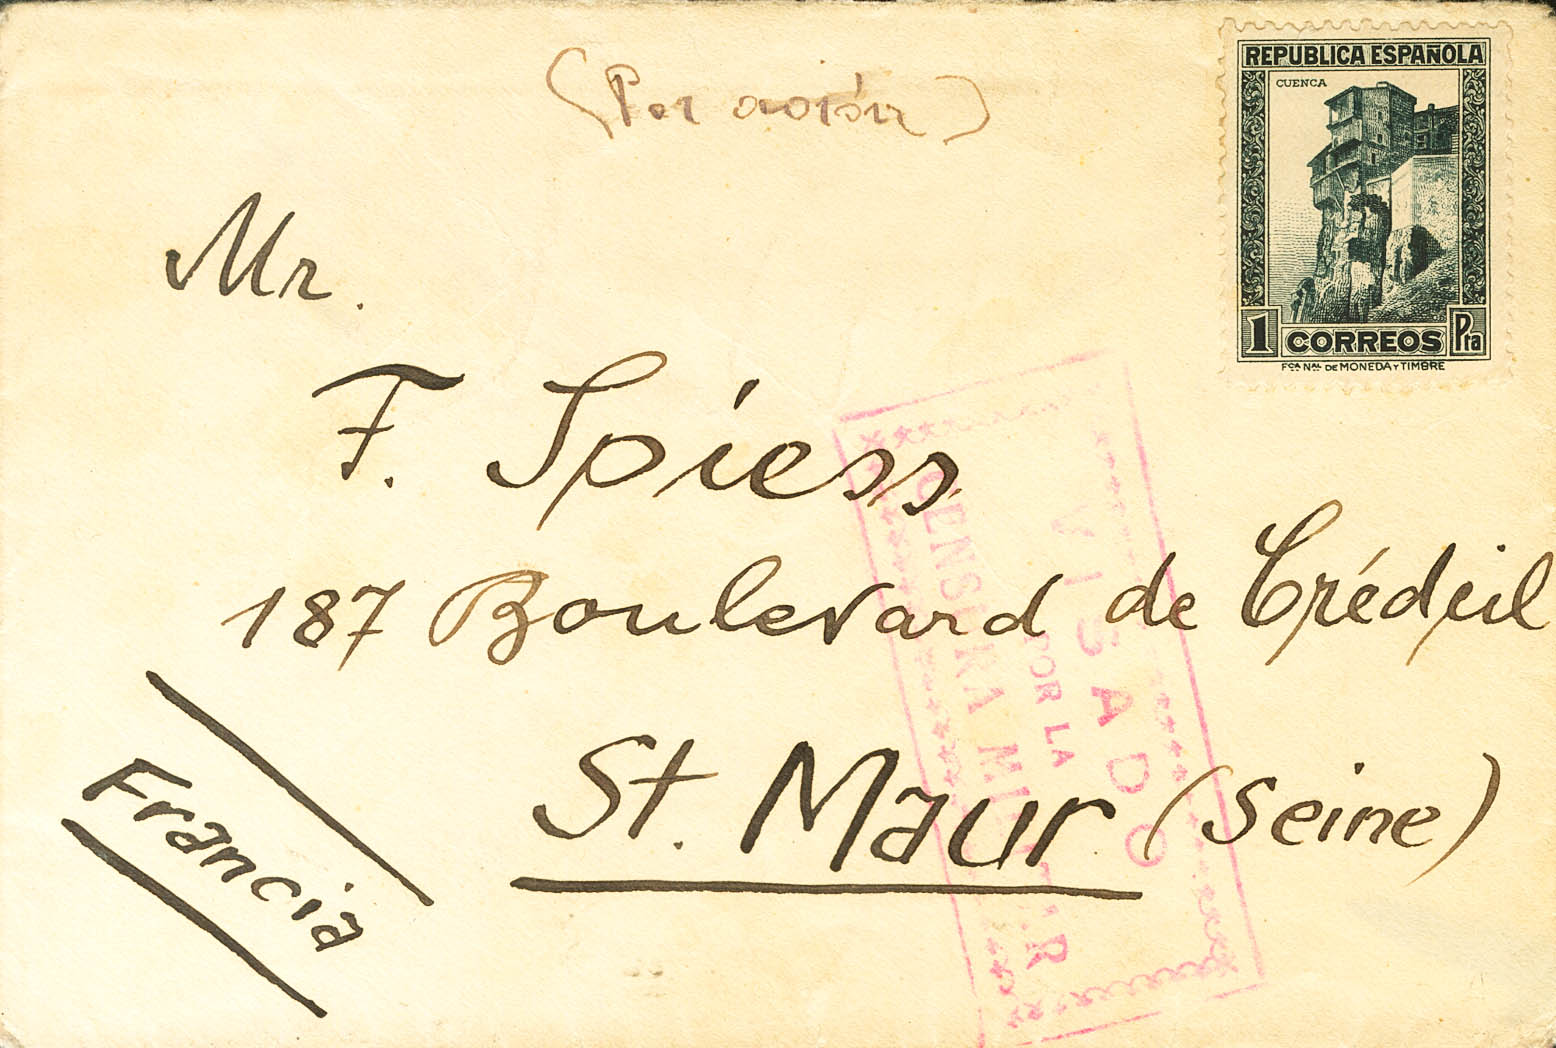 (Por avión)
REPUBLICA ESPAÑOLA
CUENCA
1 CORREOS Pta
FCA NAL DE MONEDA Y TIMBRE
Mr.
F. Spiess
187 Boulevard de Créduil
St. Maur (Seine)
Francia
VISADO
POR LA
CENSURA MILITAR